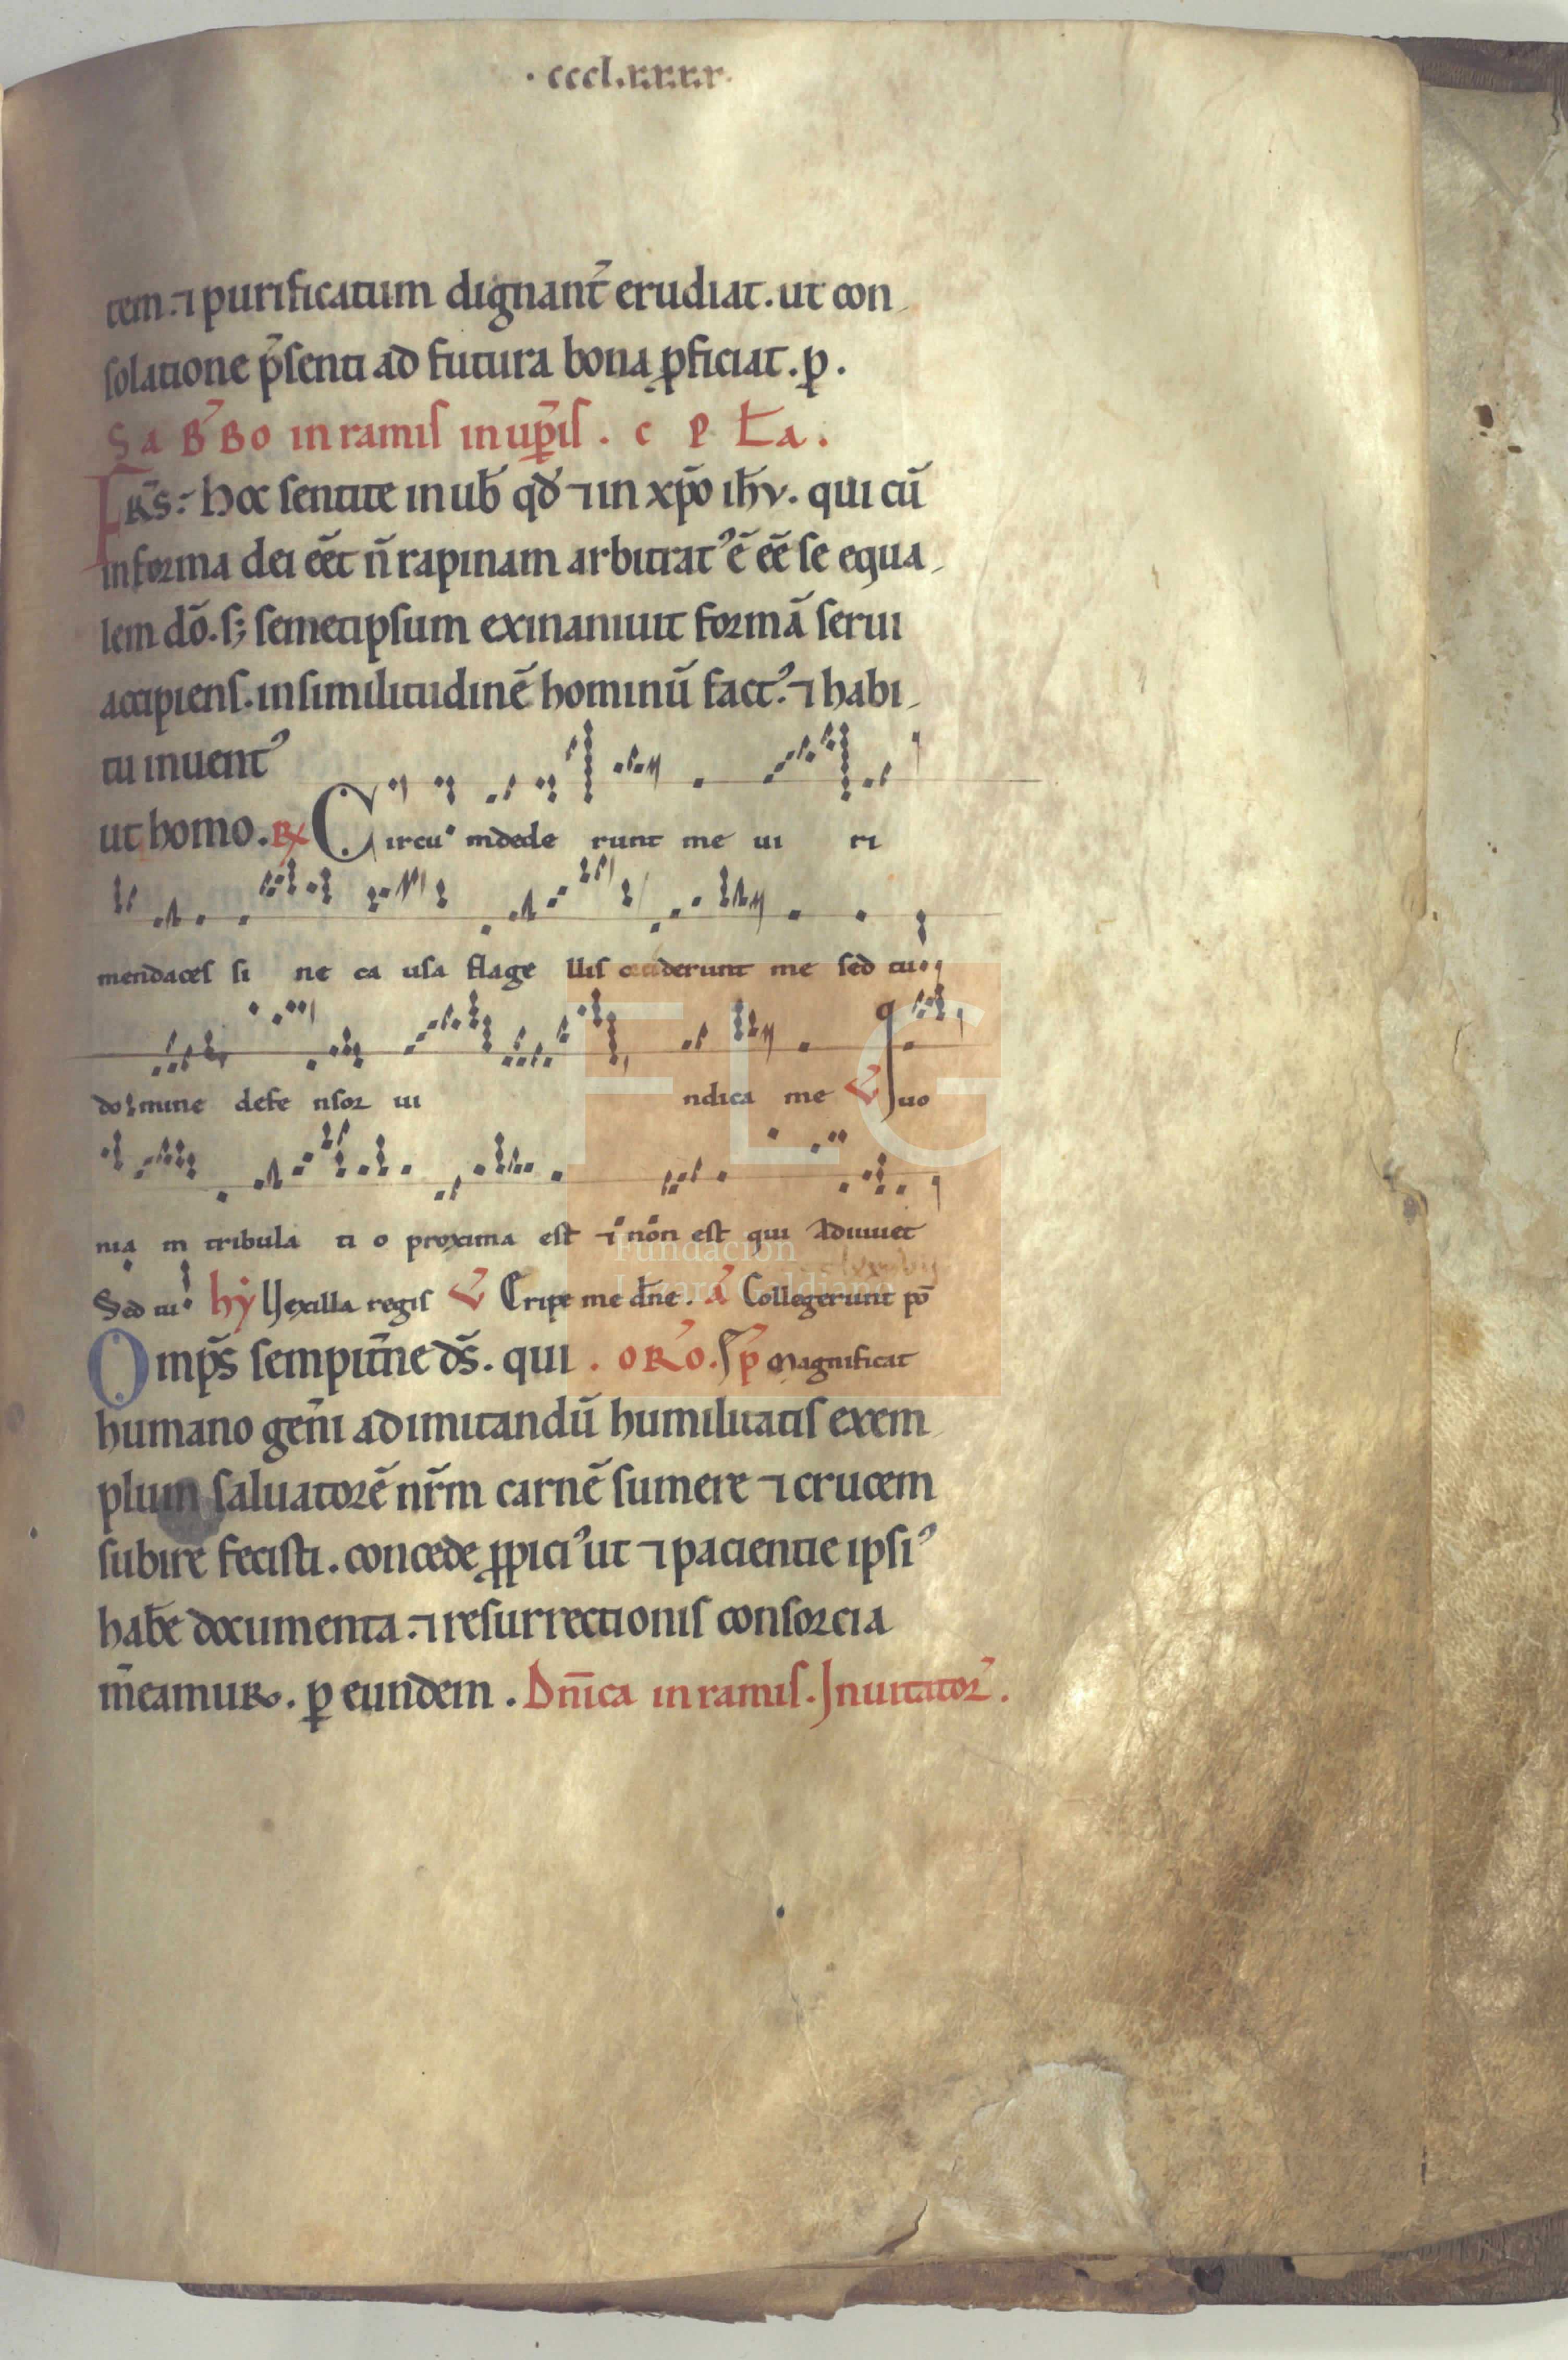 · cccl.xxxx.
tem. ⁊ purificatum dignant᷒ erudiat. ut con
solatione p̄senti ad futura bona ꝓficiat. p̱.
SaB̄Bo in ramis in up̄is. c p Ła.
Fr̄s: hoc sentite in ub̄ qď ⁊ in xp̄o ih̄v. qui cū
in forma dei eēt n̄ rapinam arbitrat᷒ ē eē se equa
lem dō. s; semetipsum exinaniuit formā serui
accipiens. in similitudinē hominū fact᷒. ⁊ habi
tu inuent᷒
ut homo. R̷ Circu mdede runt me ui ri
mendaces si ne ca usa flage llis ceciderunt me sed tu
do mine defe nsor ui ndica me V̄ Quo
niā in tribula ti o proxima est ⁊ non est qui Adiuuet
Sed tu hẏ Vexilla regis V̄ Eripe me dn̄e. ā Collegerunt pō
Omp̄s sempit̄ne ds̄. qui . oR̄o. S̄p̄ Magnificat
humano gen̄i ad imitandū humilitatis exem
plum saluatorē nr̄m carnē sumere ⁊ crucem
subire fecisti. concede ꝓpici᷒ ut ⁊ pacientie ipsi᷒
hab̄e documenta. ⁊ resurrectionis consorcia
m̄eamur. p̱ eundem. Dn̄ica in ramis. Inuitator̄.
FLG
Fundación
Lázaro Galdiano